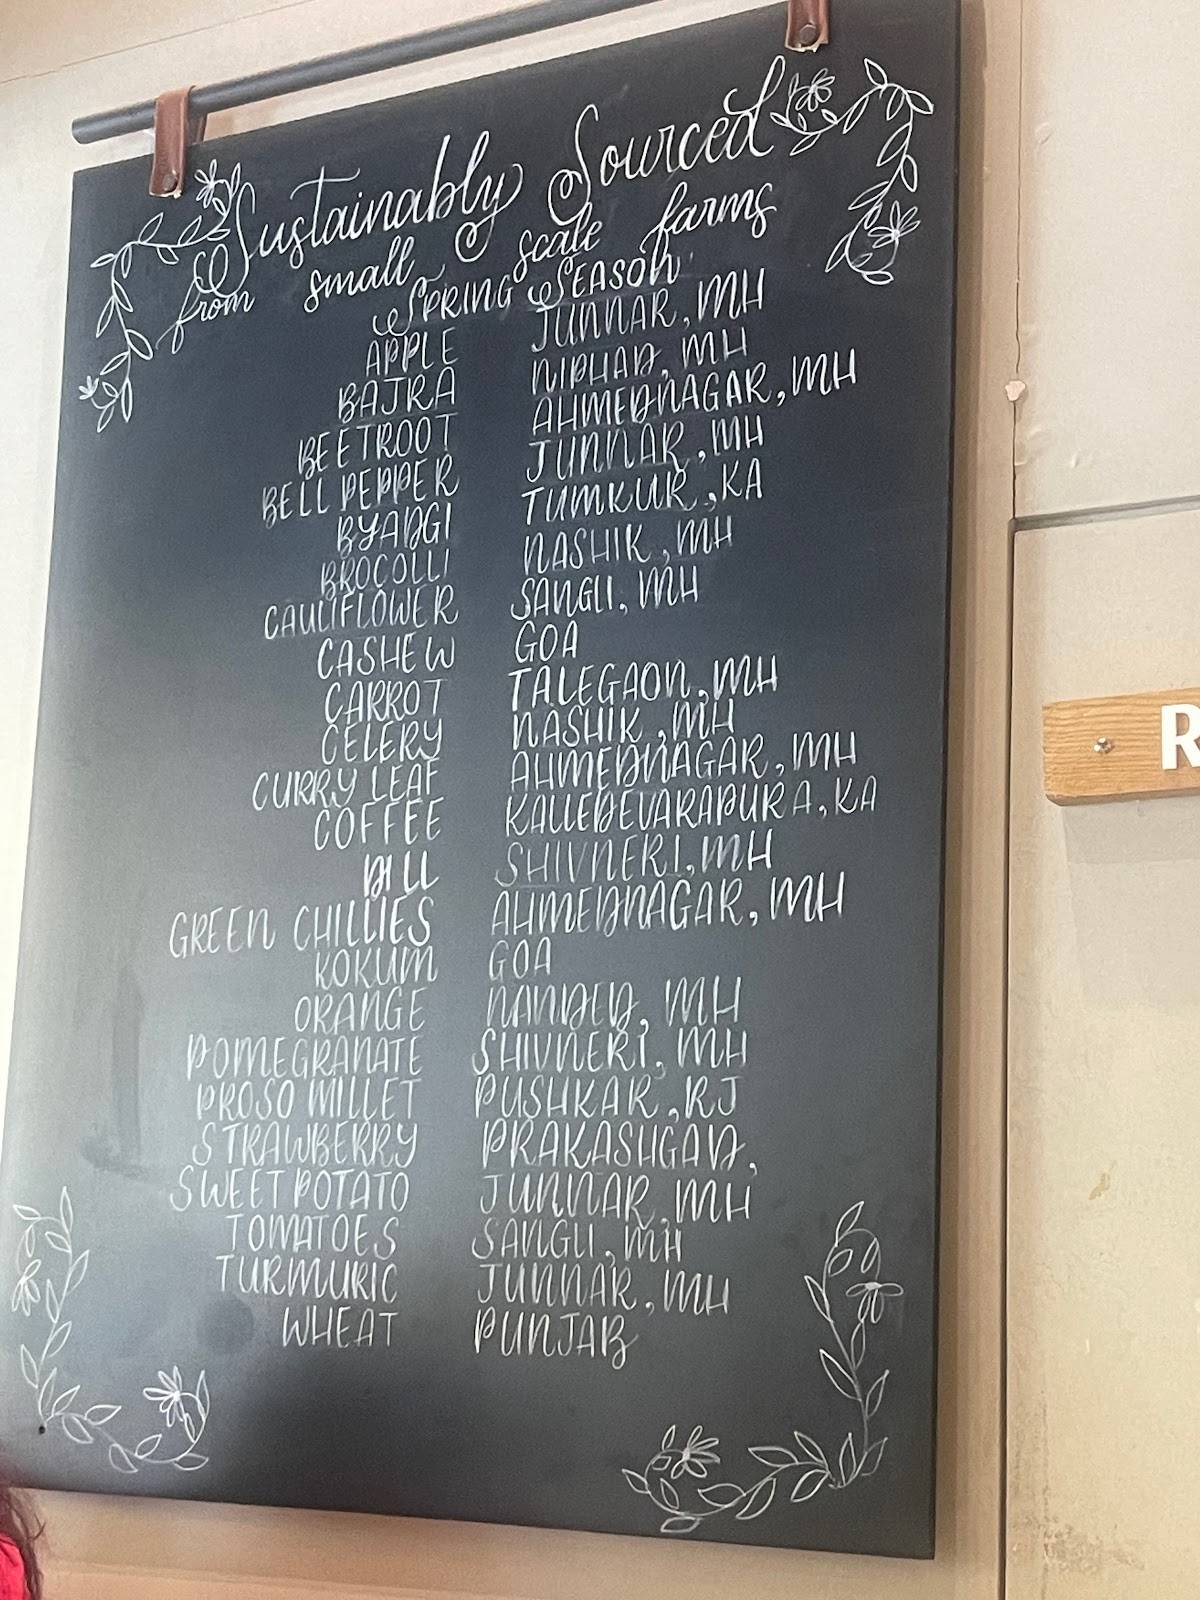 Sustainably Sourced
from small scale farms
SPRING SEASON
APPLE JUNNAR, MH
BAJRA NIPHAD, MH
BEETROOT AHMEDNAGAR, MH
BELL PEPPER JUNNAR, MH
BYADGI TUMKUR, KA
BROCOLLI NASHIK, MH
CAULIFLOWER SANGLI, MH
CASHEW GOA
CARROT TALEGAON, MH
CELERY NASHIK, MH
CURRY LEAF AHMEDNAGAR, MH
COFFEE KALLEDEVARAPURA, KA
DILL SHIVNERI, MH
GREEN CHILLIES AHMEDNAGAR, MH
KOKUM GOA
ORANGE NANDED, MH
POMEGRANATE SHIVNERI, MH
PROSO MILLET PUSHKAR, RJ
STRAWBERRY PRAKASHGAD,
SWEET POTATO JUNNAR, MH
TOMATOES SANGLI, MH
TURMURIC JUNNAR, MH
WHEAT PUNJAB
R